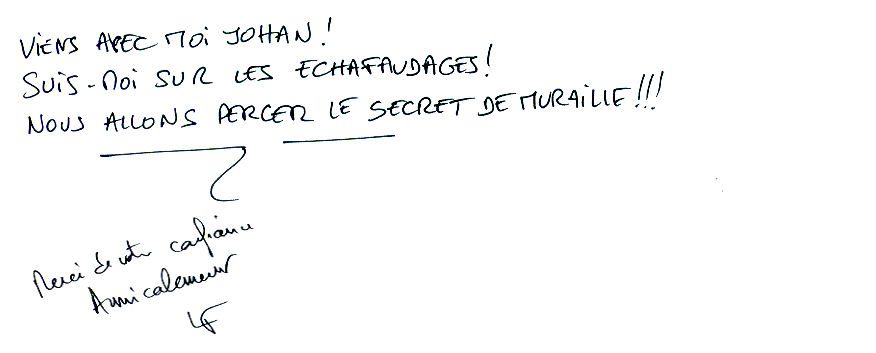 VIENS AVEC MOI JOHAN !
SUIS-MOI SUR LES ECHAFAUDAGES !
NOUS ALLONS PERCER LE SECRET DE MURAILLE !!!
Merci de votre confiance
Amicalement
LF